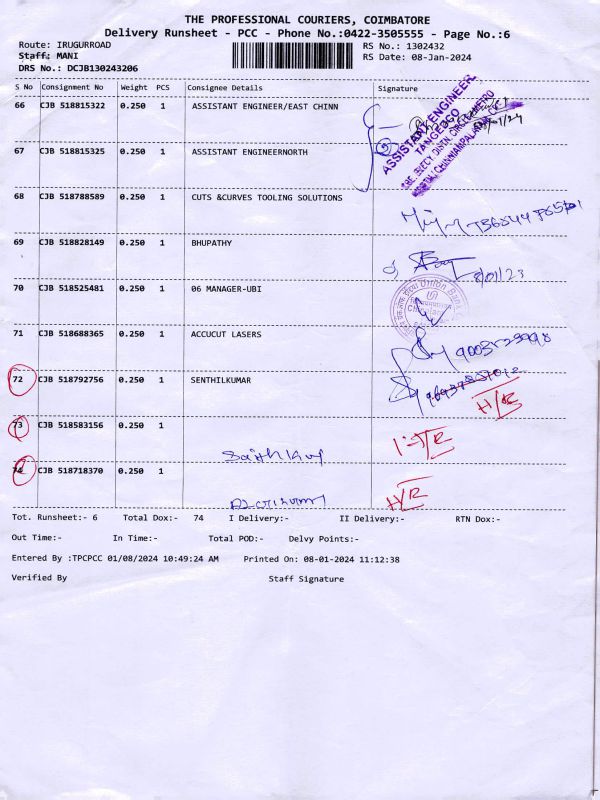 THE PROFESSIONAL COURIERS, COIMBATORE
Delivery Runsheet - PCC - Phone No.:0422-3505555 - Page No.:6
Route: IRUGURROAD RS No.: 1302432
Staff: MANI RS Date: 08-Jan-2024
DRS No.: DCJB130243206
S No Consignment No Weight PCS Consignee Details Signature
66 CJB 518815322 0.250 1 ASSISTANT ENGINEER/EAST CHINN
ASSISTANT ENGINEER
TANGEDCO
67 CJB 518815325 0.250 1 ASSISTANT ENGINEERNORTH
68 CJB 518788589 0.250 1 CUTS &CURVES TOOLING SOLUTIONS
69 CJB 518828149 0.250 1 BHUPATHY
8/01/23
70 CJB 518525481 0.250 1 06 MANAGER-UBI
71 CJB 518688365 0.250 1 ACCUCUT LASERS
72 CJB 518792756 0.250 1 SENTHILKUMAR
73 CJB 518583156 0.250 1
74 CJB 518718370 0.250 1
Tot. Runsheet:- 6 Total Dox:- 74 I Delivery:- II Delivery:- RTN Dox:-
Out Time:- In Time:- Total POD:- Delvy Points:-
Entered By :TPCPCC 01/08/2024 10:49:24 AM Printed On: 08-01-2024 11:12:38
Verified By Staff Signature